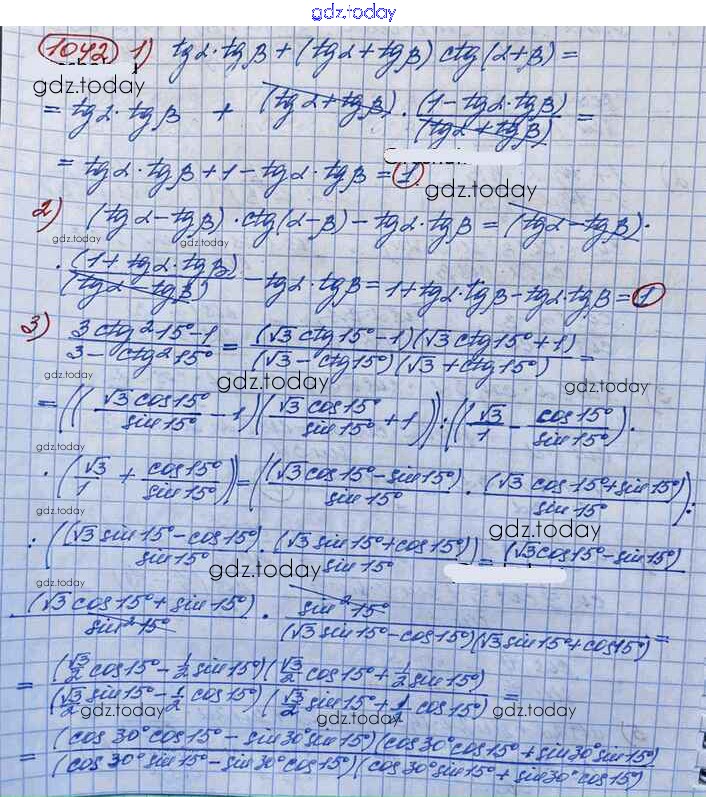 gdz.today
1042 1) tgα·tgβ + (tgα + tgβ) ctg(α+β) =
gdz.today
= tgα·tgβ + (tgα + tgβ) · (1 - tgα·tgβ)/(tgα + tgβ) =
= tgα·tgβ + 1 - tgα·tgβ = 1.
gdz.today
2) (tgα - tgβ)·ctg(α-β) - tgα·tgβ = (tgα - tgβ)·
gdz.today
gdz.today
· (1 + tgα·tgβ)/(tgα - tgβ) - tgα·tgβ = 1 + tgα·tgβ - tgα·tgβ = 1
3) (3ctg²15° - 1)/(3 - ctg²15°) = (√3 ctg15° - 1)(√3 ctg15° + 1)/(√3 - ctg15°)(√3 + ctg15°) =
gdz.today
gdz.today
= ((√3 cos15°/sin15° - 1)(√3 cos15°/sin15° + 1)) : ((√3/1 - cos15°/sin15°)·
gdz.today
·(√3/1 + cos15°/sin15°)) = ((√3 cos15° - sin15°)/sin15° · (√3 cos15° + sin15°)/sin15°) :
gdz.today
: ((√3 sin15° - cos15°)/sin15° · (√3 sin15° + cos15°)/sin15°) = (√3 cos15° - sin15°)
gdz.today
gdz.today
gdz.today
(√3 cos15° + sin15°)/sin²15° · sin²15°/(√3 sin15° - cos15°)(√3 sin15° + cos15°) =
= (√3/2 cos15° - 1/2 sin15°)(√3/2 cos15° + 1/2 sin15°)/(√3/2 sin15° - 1/2 cos15°)(√3/2 sin15° + 1/2 cos15°) =
gdz.today
gdz.today
gdz.today
= (cos30° cos15° - sin30° sin15°)(cos30° cos15° + sin30° sin15°)/(cos30° sin15° - sin30° cos15°)(cos30° sin15° + sin30° cos15°)